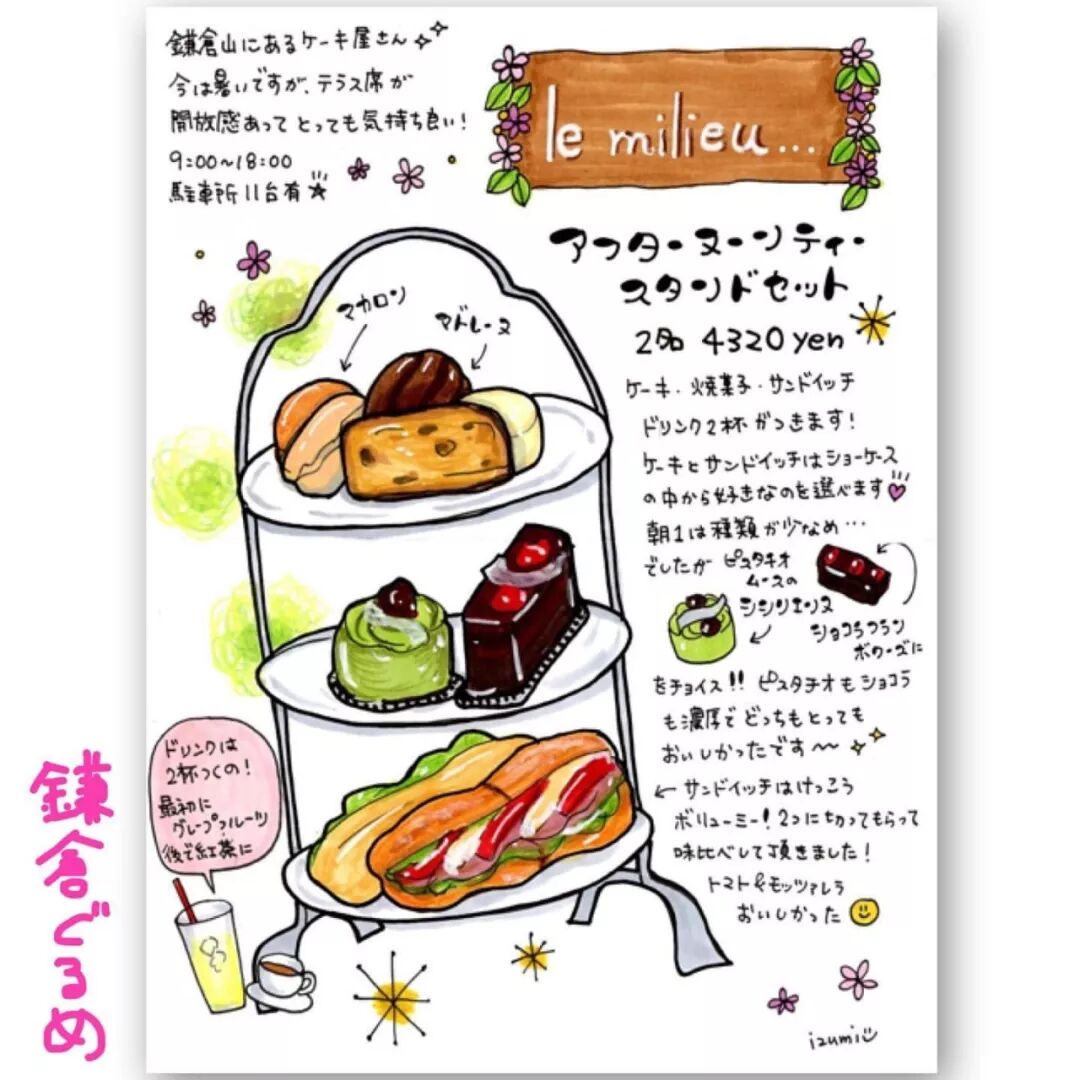 鎌倉山にあるケーキ屋さん
今は暑いですが、テラス席が
開放感あってとっても気持ち良い!
9:00~18:00
駐車所11台有
le milieu...
アフターヌーンティー
スタンドセット
2名 4320yen
ケーキ・焼菓子・サンドイッチ
ドリンク2杯がつきます!
ケーキとサンドイッチはショーケース
の中から好きなのを選べます
朝1は種類が少なめ…
でしたが ピスタチオ
ムースの
シシリエンヌ
ショコラフラン
ボワーズに
をチョイス!! ピスタチオもショコラ
も濃厚でどっちもとっても
おいしかったです〜
← サンドイッチはけっこう
ボリューミー!2つに切ってもらって
味比べして頂きました!
トマト&モッツァレラ
おいしかった
マカロン
マドレーヌ
ドリンクは
2杯つくの!
最初に
グレープフルーツ
後で紅茶に
鎌倉ぐるめ
izumi